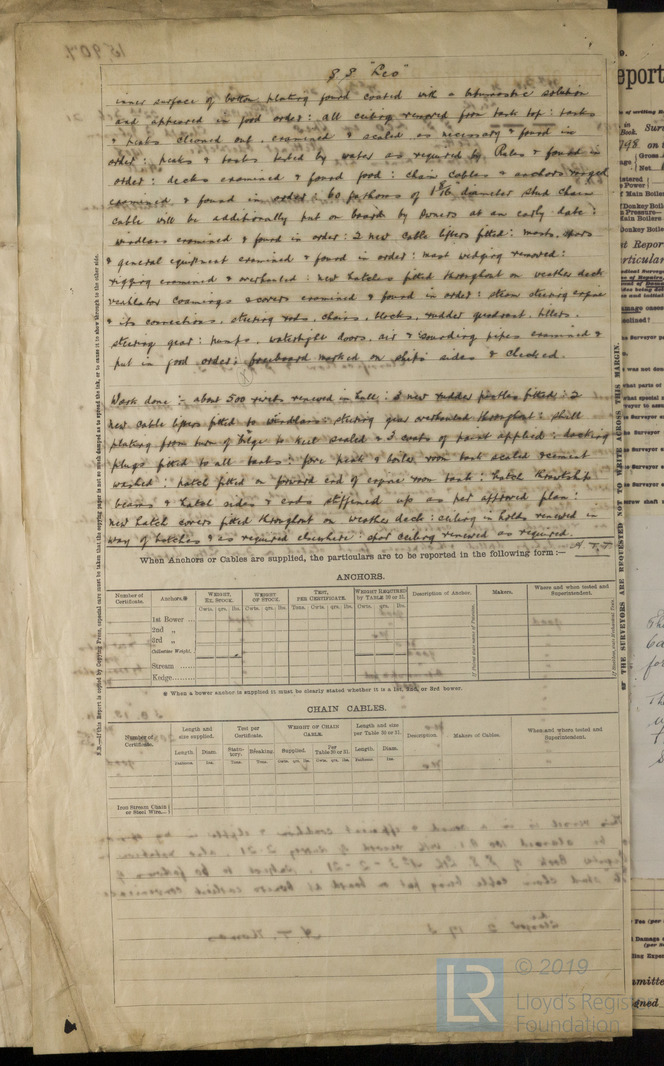 S S "Leo"
inner surface of bottom plating found coated with a bitumastic solution
and appeared in good order: all ceiling removed from tank top: tanks
& peaks cleaned out, examined & scaled as necessary & found in
order: peaks & tanks tested by water as required by Rules & found in
order: decks examined & found good: chain cables & anchors ranged
examined & found in order: 60 fathoms of diameter stud chain
cable will be additionally put on board by Owners at an early date:
windlass examined & found in order: 2 new cable lifters fitted: masts, spars
& general equipment examined & found in order: mast wedging removed:
rigging examined & overhauled: new hatches fitted throughout on weather deck
ventilator coamings & covers examined & found in order: steam steering engine
& its connections, steering rods, chains, blocks, rudder quadrant, tillers,
steering gear: pumps, watertight doors, air & sounding pipes examined &
put in good order: freeboard marked on ships sides & checked.
Work done :- about 500 rivets renewed in hull: 3 new rudder pintles fitted: 2
new cable lifters fitted to windlass: steering gear overhauled throughout: shell
plating from turn of bilge to keel scaled & 3 coats of paint applied: docking
plugs fitted to all tanks: fore peak & boiler room tank scaled & cement
washed: patch fitted on forward end of engine room tank: hatch thwartship
beams & hatch sides & ends stiffened up as per approved plan:
new hatch covers fitted throughout on weather deck: ceiling in holds renewed in
way of hatches & as required elsewhere: spar ceiling renewed as required.
When Anchors or Cables are supplied, the particulars are to be reported in the following form:—
ANCHORS.
Number of Certificate. Anchors.* WEIGHT, EX. STOCK. WEIGHT OF STOCK. TEST, PER CERTIFICATE. WEIGHT REQUIRED by TABLE 30 or 31. Description of Anchor. Makers. Where and when tested and Superintendent.
Cwts. qrs. lbs. Cwts. qrs. lbs. Tons. Cwts. qrs. lbs. Cwts. qrs. lbs.
1st Bower
2nd „
3rd „
Collective Weight.
Stream
Kedge
* When a bower anchor is supplied it must be clearly stated whether it is a 1st, 2nd, or 3rd bower.
CHAIN CABLES.
Number of Certificate. Length and size supplied. Test per Certificate. WEIGHT OF CHAIN CABLE. Length and size per Table 30 or 31. Description. Makers of Cables. When and where tested and Superintendent.
Length. Diam. Statutory. Breaking. Supplied. Per Table 30 or 31. Length. Diam.
Iron Stream Chain or Steel Wire
THE SURVEYORS ARE REQUESTED NOT TO WRITE ACROSS THIS MARGIN.
© 2019
LR
Lloyd's Regis
Foundation